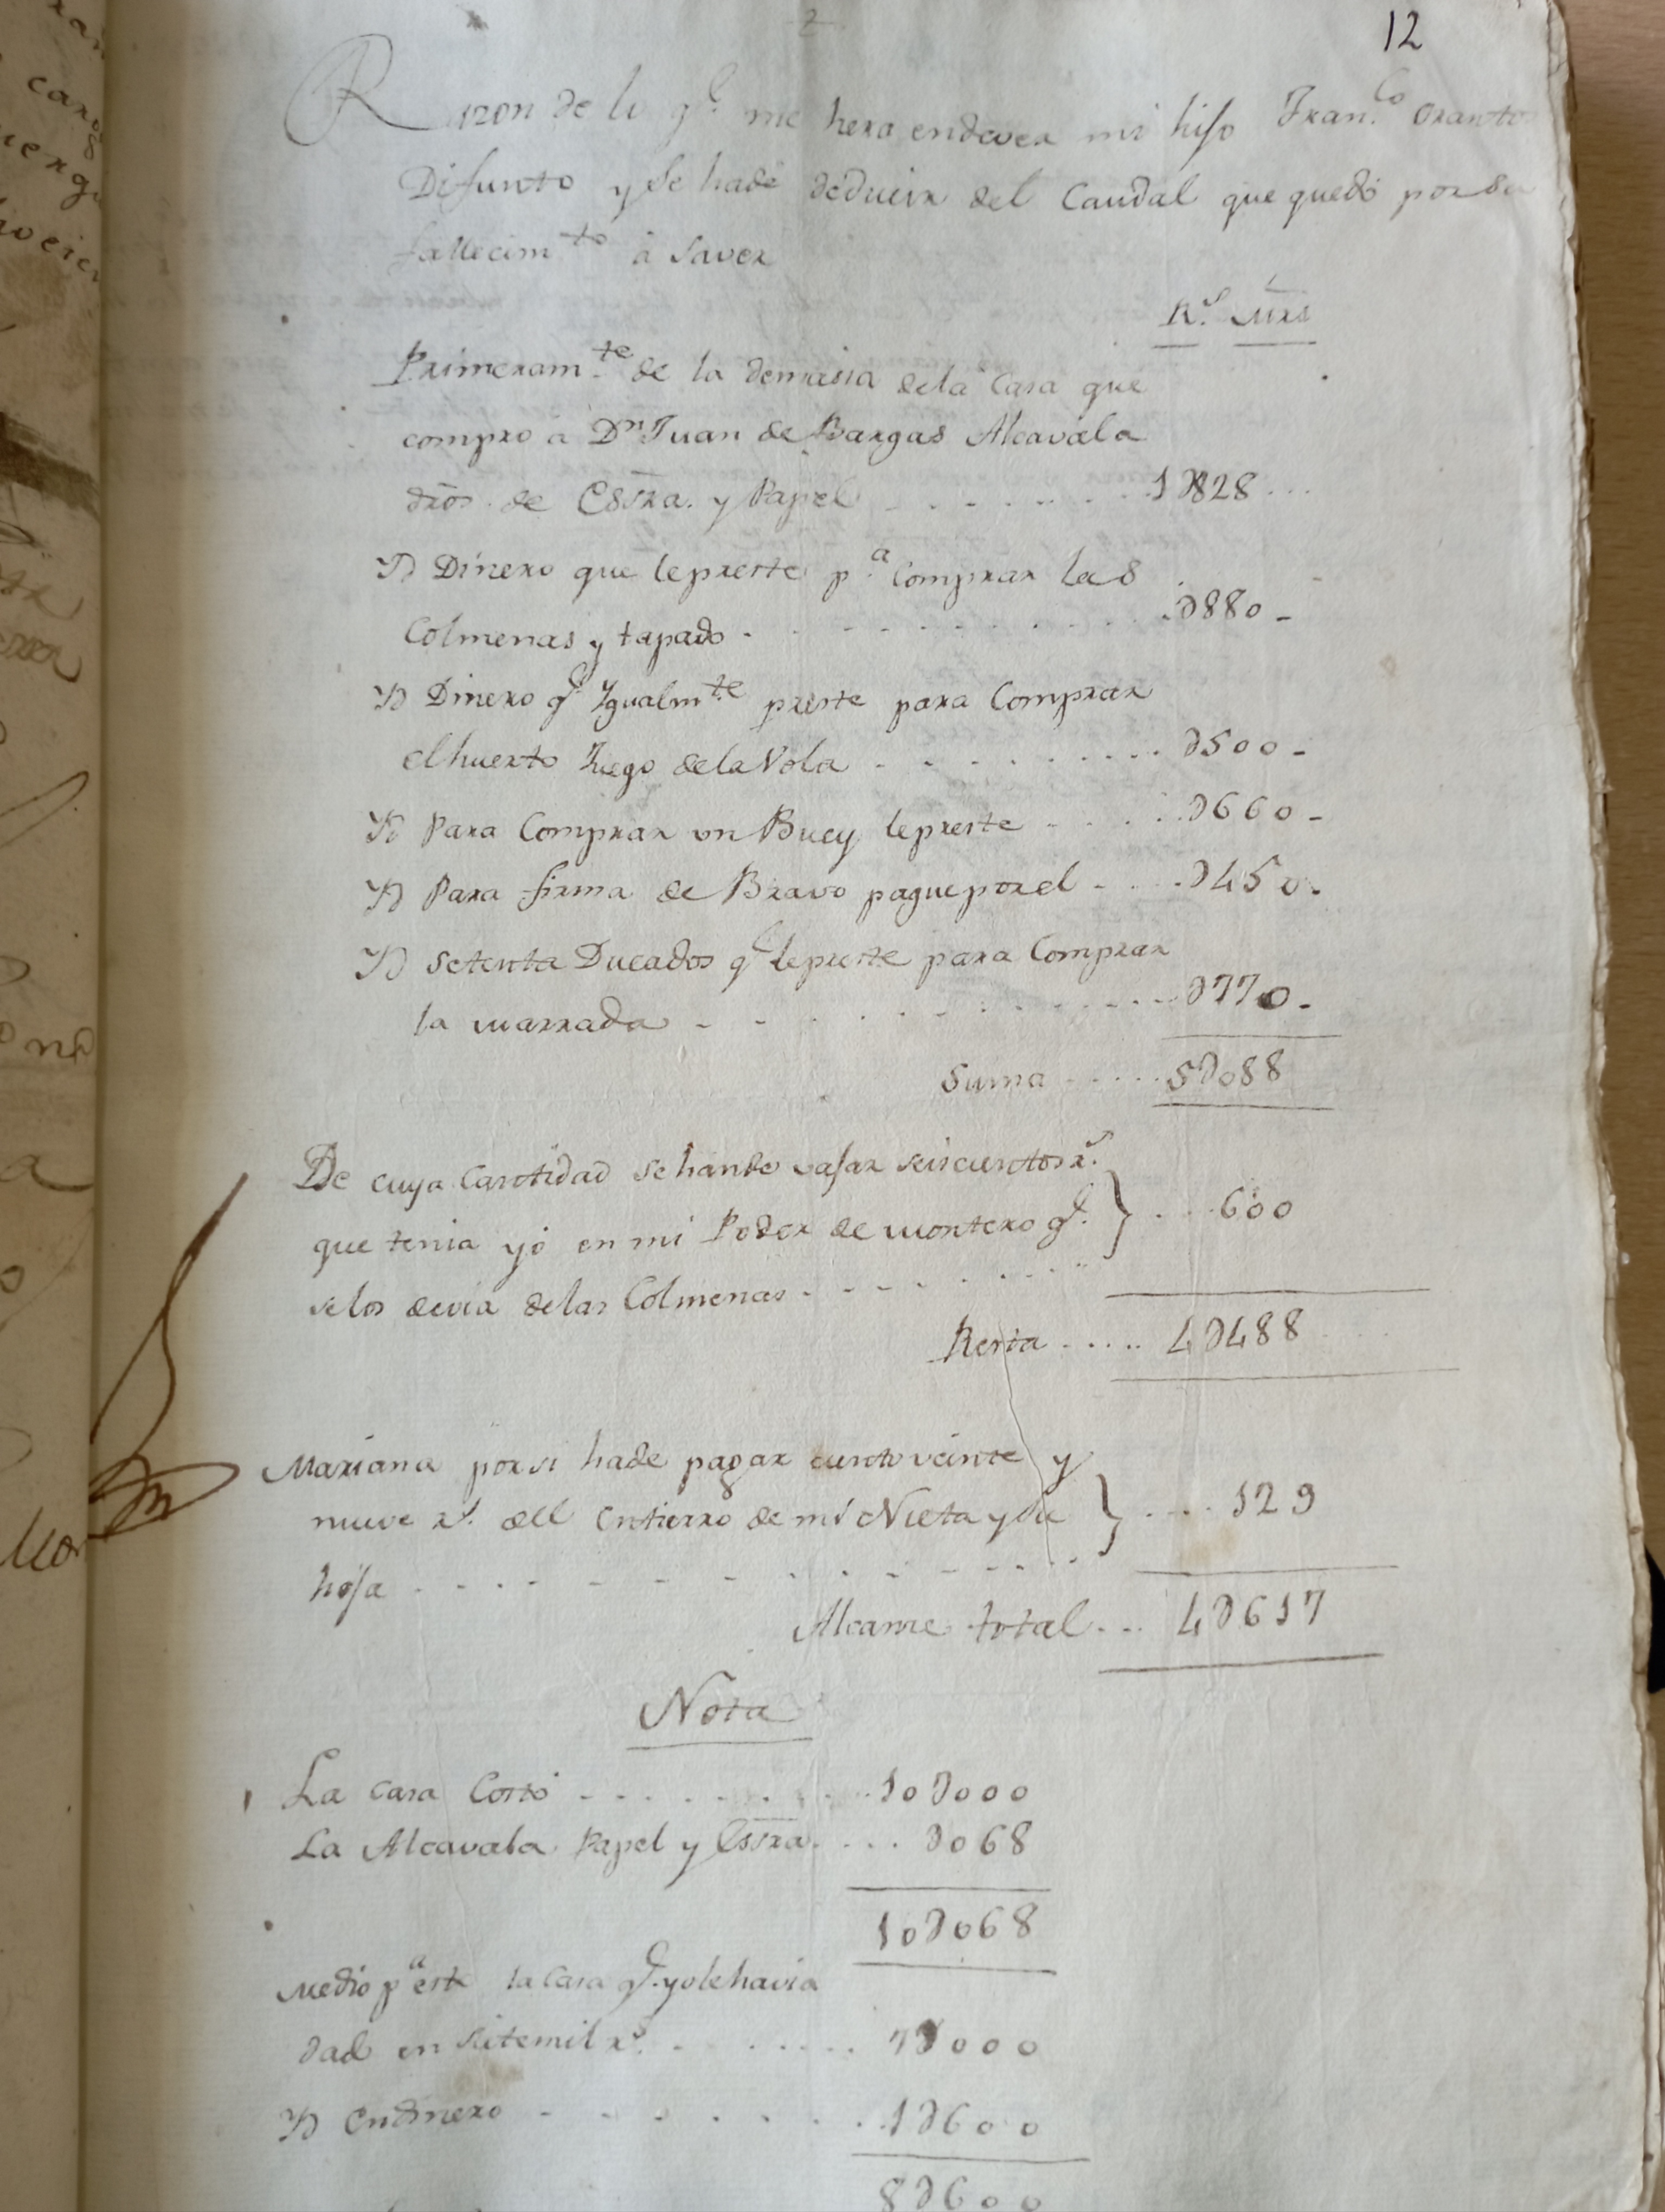 2
12
Razon de lo q.e me hera endever mi hijo Fran.co Orantos
Difunto y se hade deducir del Caudal que quedó por su
fallecim.to à saver
R.s Mrs
Primeram.te de la demasia dela Casa que
compro a Dn Juan de Bargas Alcavala
dros. de Essra. y Papel . . . . . . . 1D828 . . .
Yd Dinero que lepreste p.a Comprar las
Colmenas y tapado . . . . . . . . . . D880 -
Yd Dinero q.e Ygualm.te preste para Comprar
elhuerto Juego dela Vola . . . . . . . . . D500 -
Yd Para Comprar un Buey lepreste . . . . . D660 -
Yd Para firma de Bravo pague porel . . . . D450 -
Yd Setenta Ducados q.e lepreste para Comprar
la marrada . . . . . . . . . . . . D770 -
Suma . . . . . 5D088
De cuya Cantidad sehande vajar seiscientos r.s
que tenia yó en mi Poder de Montero q.e } . . . 600
selos devia delas Colmenas . . . . . . . .
Resta . . . . . 4D488
Mariana porsi hade pagar ciento veinte y
nueve r.s dell Entierro de mi Nieta y su } . . . . 129
hija . . . . . . . . . . . . . .
Alcanse total . . . 4D617
Nota
La casa Costó . . . . . . . . 10D000
La Alcavala Papel y Essra. . . . D068
10D068
Medio p.a esta la Casa q.e yolehavia
dad en sietemil r.s . . . . . . . 7D000
Yd Endinero . . . . . . . . 1D600
8D600